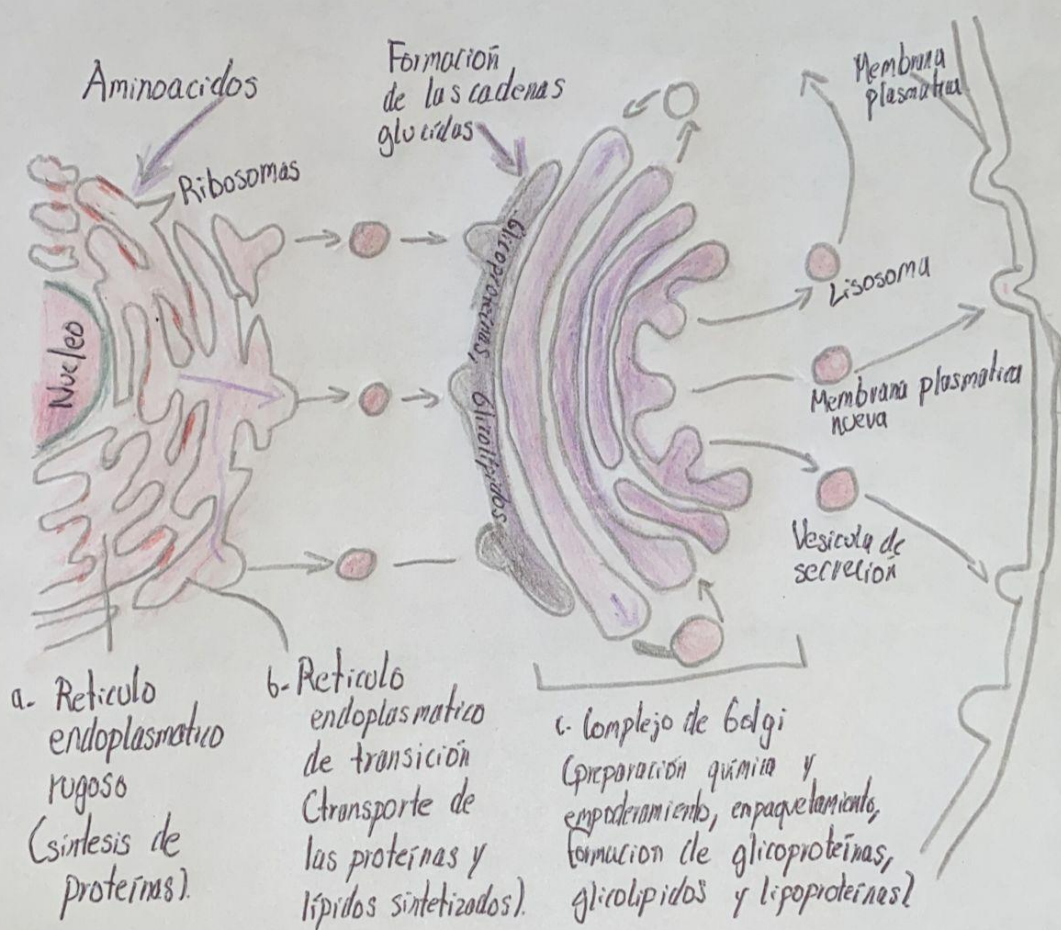 Aminoacidos
Ribosomas
Nucleo
Formación
de las cadenas
glucidas
Glicoproteinas, Glicolipidos
Membrana
plasmatica
Lisosoma
Membrana plasmatica
nueva
Vesicula de
secreción
a- Reticulo
endoplasmatico
rugoso
(sintesis de
proteínas).
b- Reticulo
endoplasmatico
de transición
(transporte de
las proteínas y
lípidos sintetizados).
c- Complejo de Golgi
(preparación química y
empoderamiento, enpaquetamiento,
formacion de glicoproteínas,
glicolipidos y lipoproteínas)